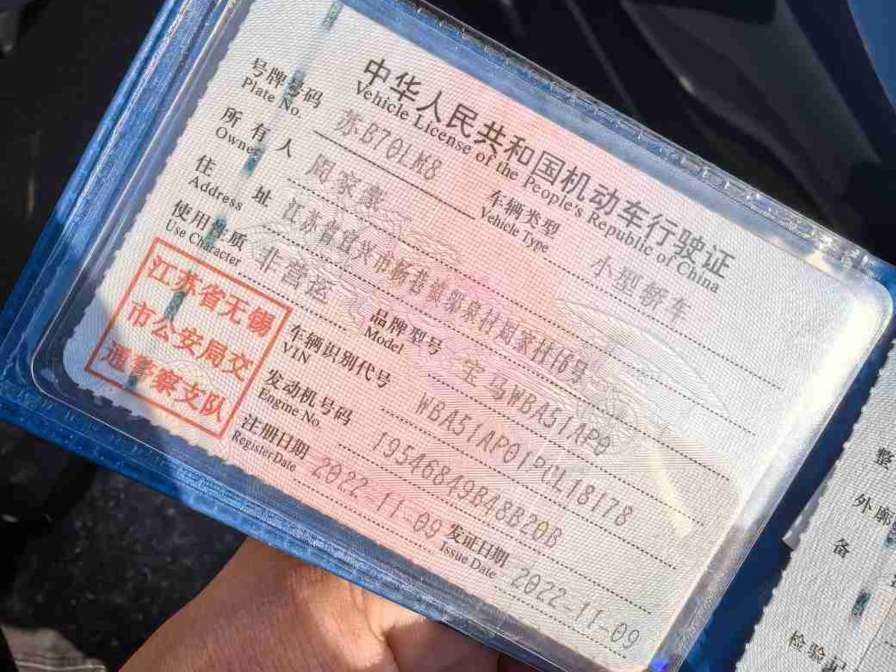 中华人民共和国机动车行驶证
Vehicle License of the People's Republic of China
号牌号码 苏B70LM8 车辆类型 小型轿车
Plate No. Vehicle Type
所有人 周家
Owner
住址 江苏省宜兴市杨巷镇邬泉村周家村16号
Address
使用性质 非营运 品牌型号 宝马WBA51AP0
Use Character Model
车辆识别代号 WBA51AP01PCL18178
VIN
发动机号码 19546849B48B20B
Engine No.
注册日期 2022-11-09 发证日期 2022-11-09
Register Date Issue Date
江苏省无锡
市公安局交
通警察支队
整
外廓
备
检验